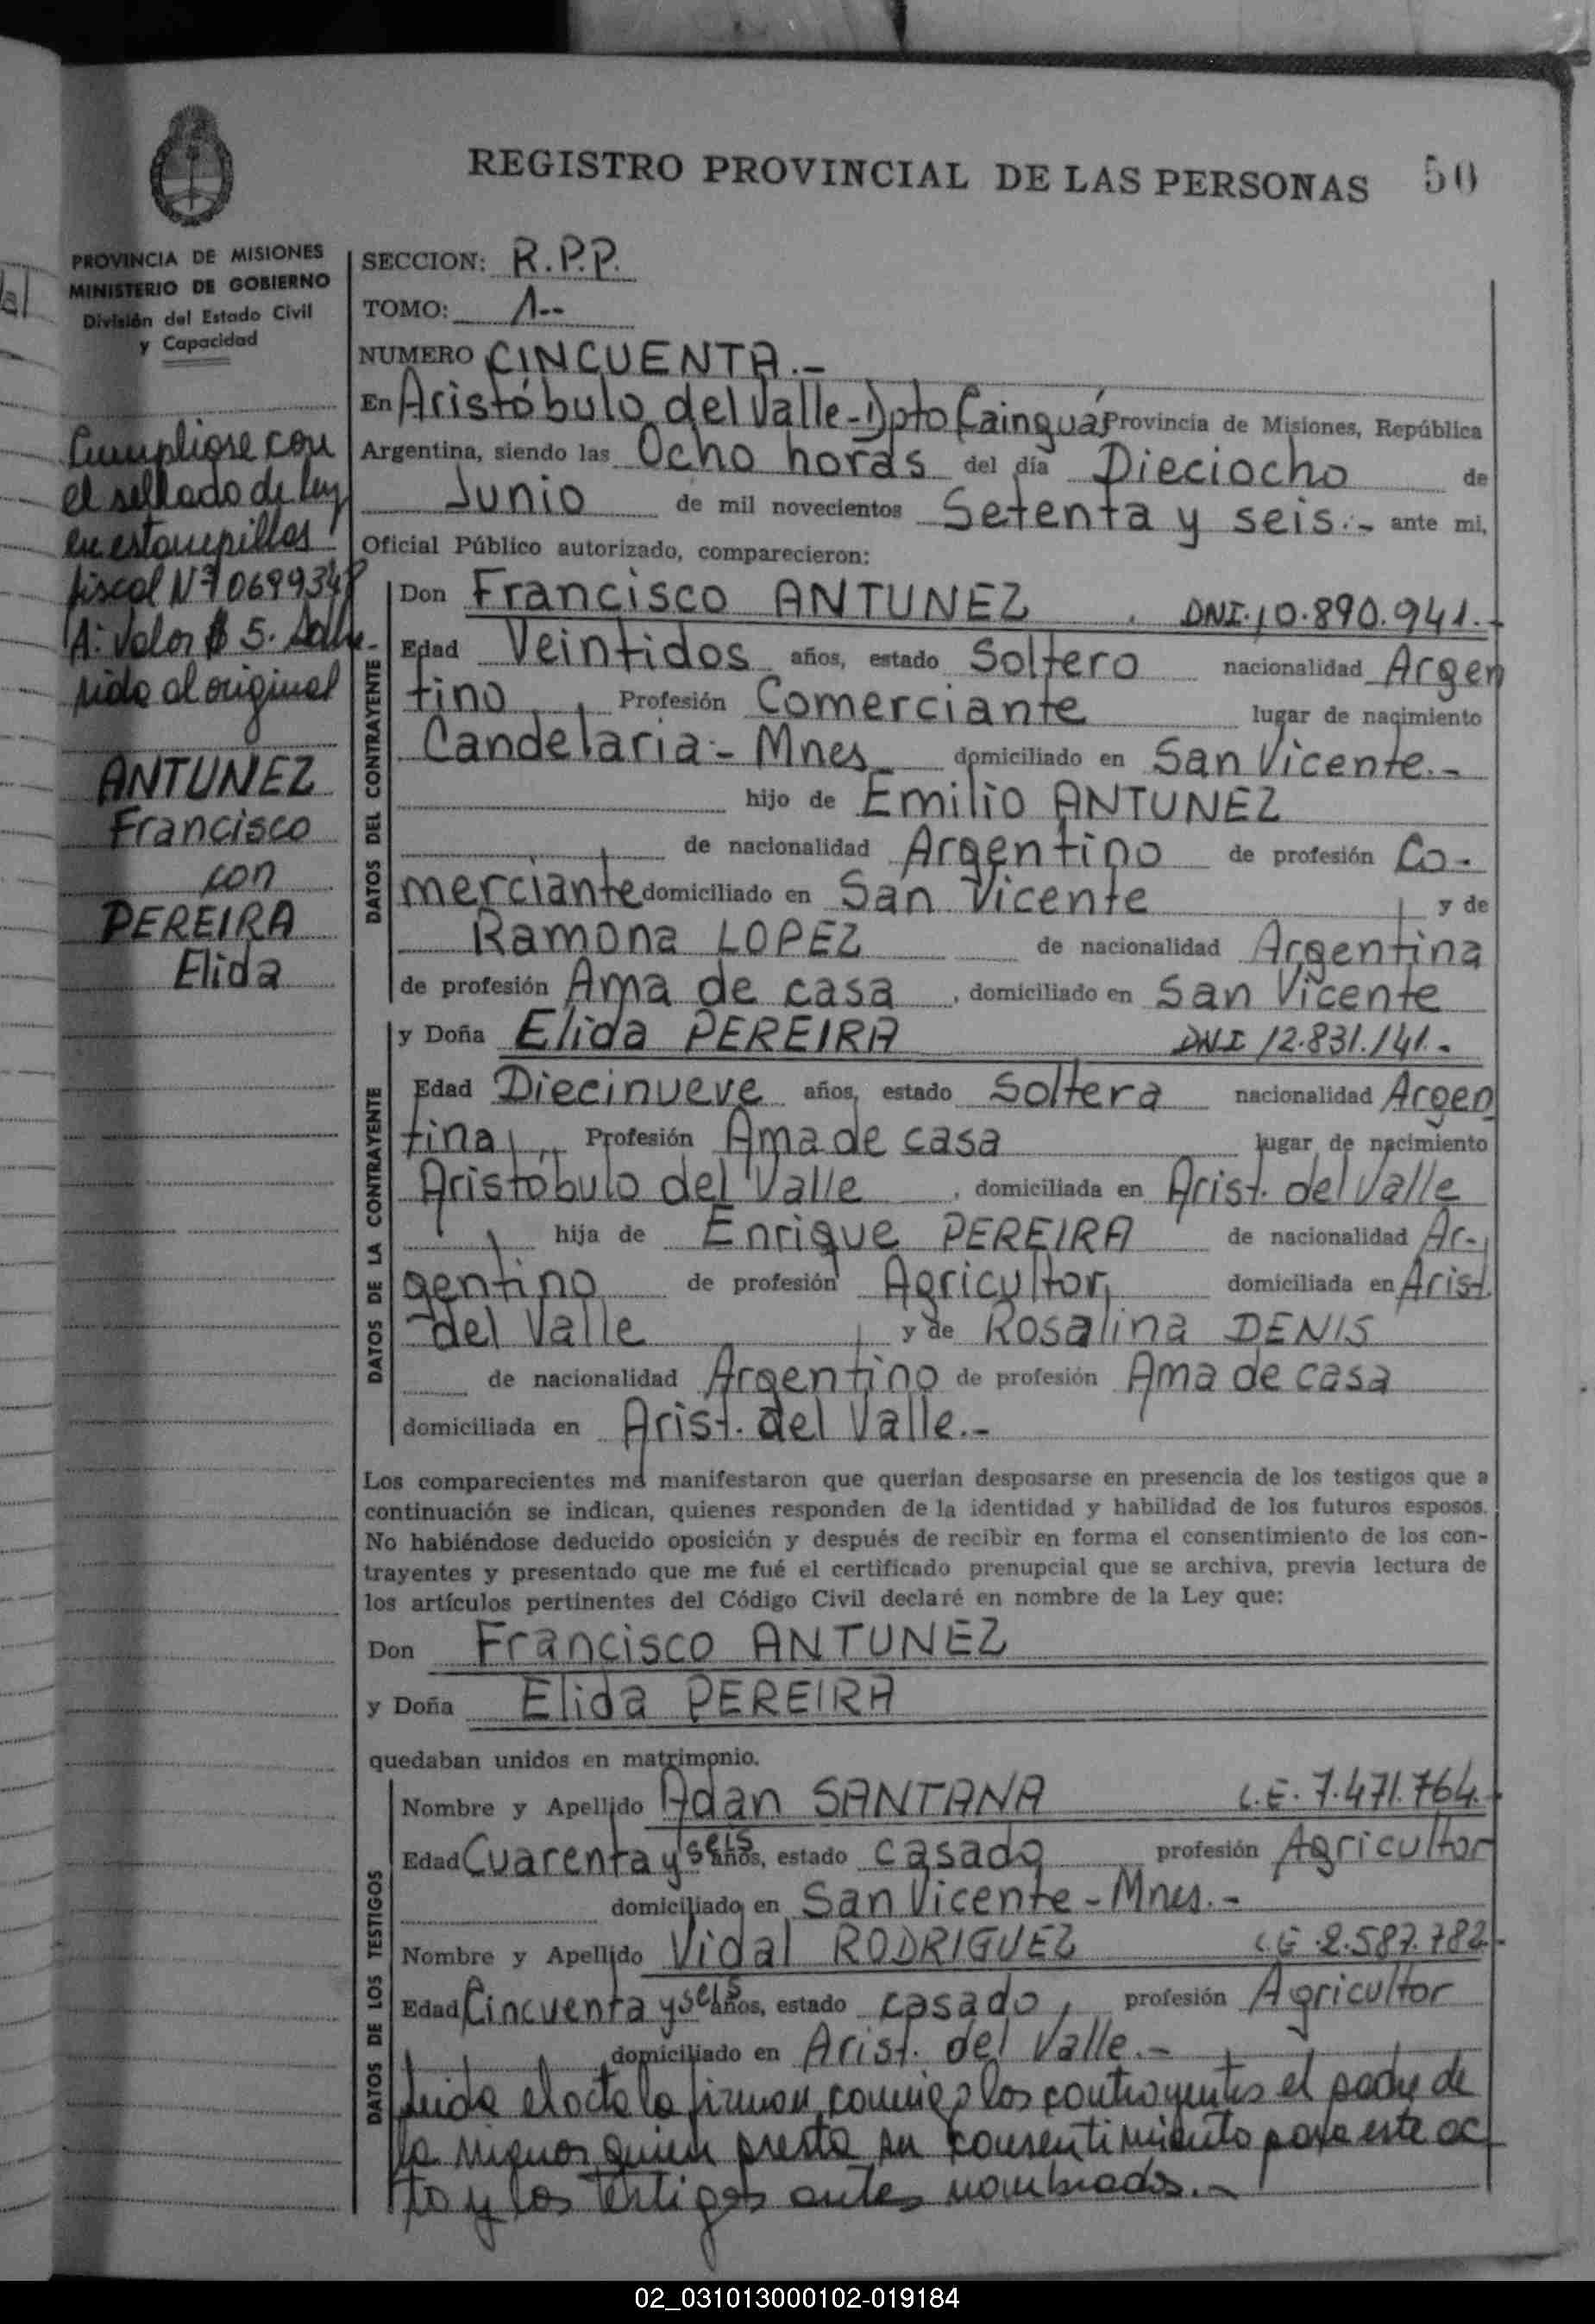 REGISTRO PROVINCIAL DE LAS PERSONAS 50
PROVINCIA DE MISIONES
MINISTERIO DE GOBIERNO
División del Estado Civil
y Capacidad
Cumpliose con
el sellado de ley
en estampillas
fiscal Nº 0699348
A: Valor $ 5.
rido al original
ANTUNEZ
Francisco
con
PEREIRA
Elida
SECCION: R.P.P.
TOMO: 1--
NUMERO CINCUENTA.-
En Aristóbulo del Valle-Dpto Cainguás Provincia de Misiones, República
Argentina, siendo las Ocho horas del día Dieciocho de
Junio de mil novecientos Setenta y seis.- ante mi,
Oficial Público autorizado, comparecieron:
DATOS DEL CONTRAYENTE
Don Francisco ANTUNEZ DNI.10.890.941.-
Edad Veintidos años, estado Soltero nacionalidad Argen
tino, Profesión Comerciante lugar de nacimiento
Candelaria.- Mnes domiciliado en San Vicente.-
hijo de Emilio ANTUNEZ
de nacionalidad Argentino de profesión Co-
merciante domiciliado en San Vicente y de
Ramona LOPEZ de nacionalidad Argentina
de profesión Ama de casa, domiciliado en San Vicente
DATOS DE LA CONTRAYENTE
y Doña Elida PEREIRA DNI 12.831.141.-
Edad Diecinueve años, estado Soltera nacionalidad Argen
tina, Profesión Ama de casa lugar de nacimiento
Aristóbulo del Valle, domiciliada en Arist. del Valle
hija de Enrique PEREIRA de nacionalidad Ar-
gentino de profesión Agricultor, domiciliada en Arist.
del Valle y de Rosalina DENIS
de nacionalidad Argentino de profesión Ama de casa
domiciliada en Arist. del Valle.-
Los comparecientes me manifestaron que querían desposarse en presencia de los testigos que a
continuación se indican, quienes responden de la identidad y habilidad de los futuros esposos.
No habiéndose deducido oposición y después de recibir en forma el consentimiento de los con-
trayentes y presentado que me fué el certificado prenupcial que se archiva, previa lectura de
los artículos pertinentes del Código Civil declaré en nombre de la Ley que:
Don Francisco ANTUNEZ
y Doña Elida PEREIRA
quedaban unidos en matrimonio.
DATOS DE LOS TESTIGOS
Nombre y Apellido Adan SANTANA L.E. 7.471.764.-
Edad Cuarenta y seis años, estado casado profesión Agricultor
domiciliado en San Vicente - Mnes.-
Nombre y Apellido Vidal RODRIGUEZ L.E. 2.587.782.-
Edad Cincuenta y seis años, estado casado, profesión Agricultor
domiciliado en Arist. del Valle.-
Leida el acta la firman conmigo los contrayentes el padre de
la menor quien presta su consentimiento para este ac
to y los testigos antes nombrados.-
02_031013000102-019184